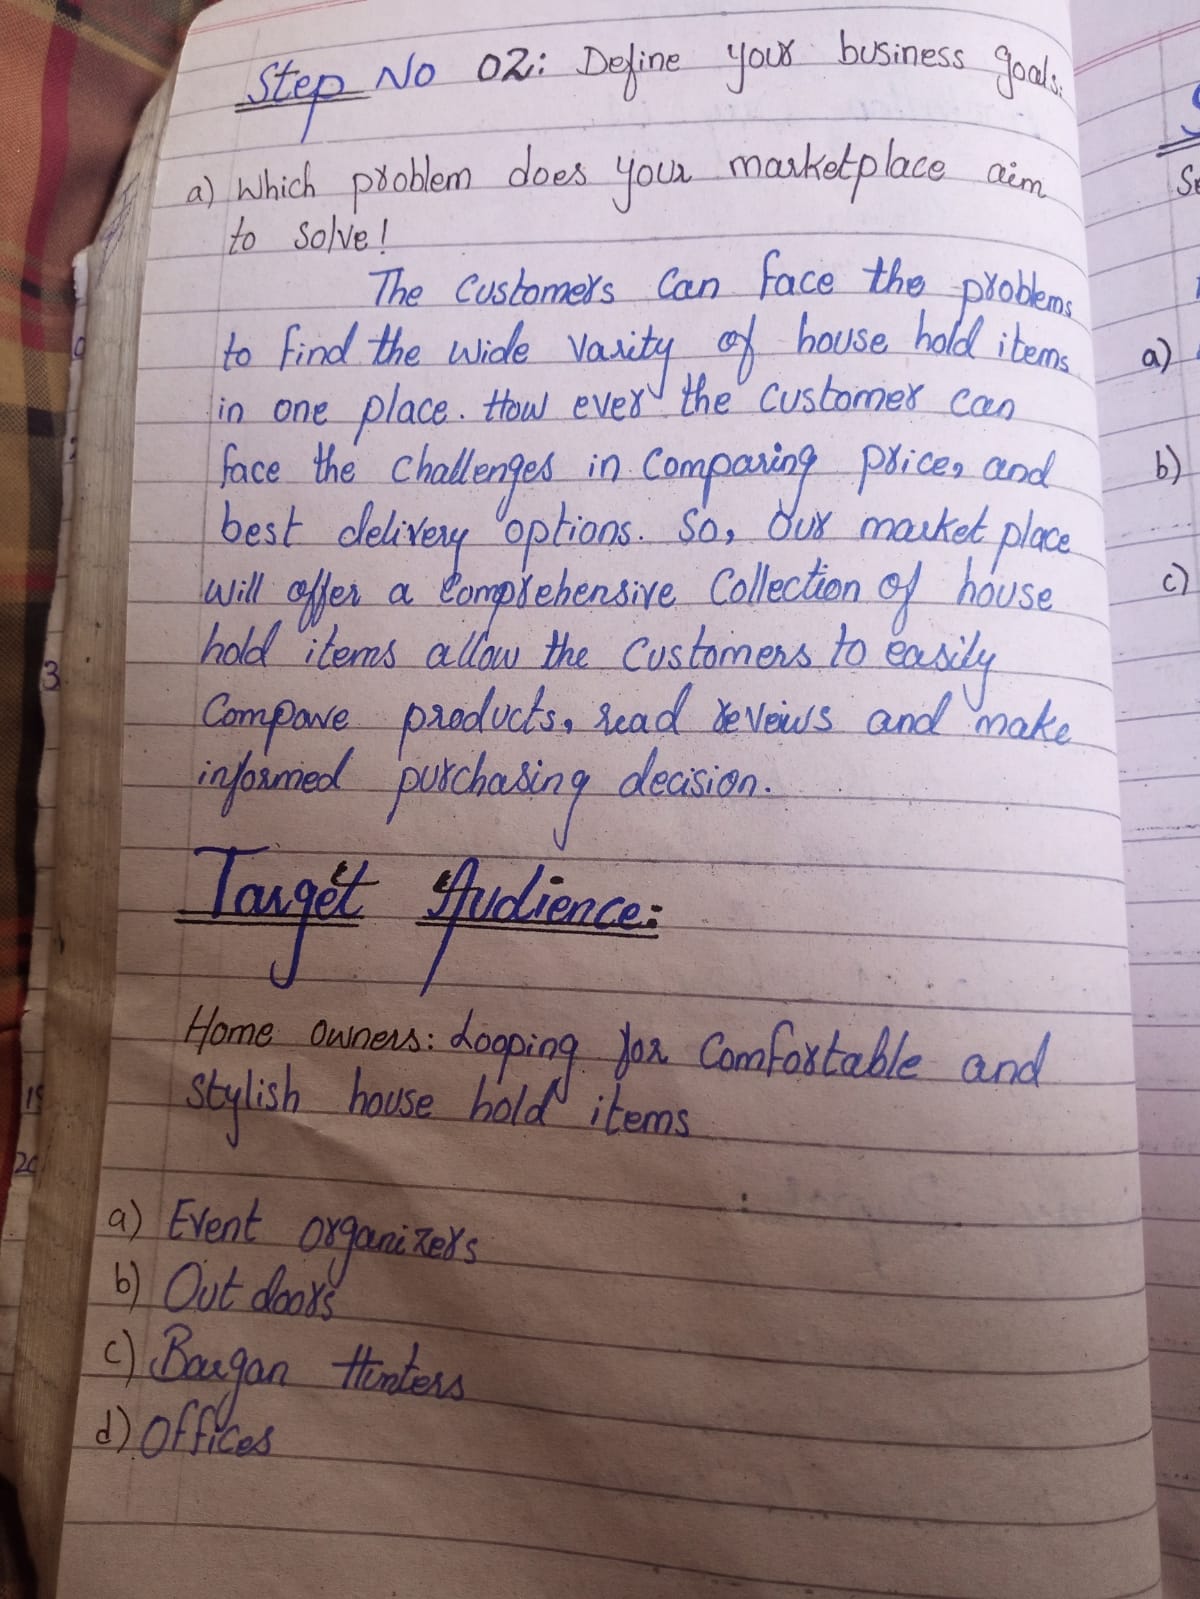 Step No 02: Define your business goals:
a) Which problem does your marketplace aim
to solve!
The Customers Can face the problems
to find the wide varity of house hold items
in one place. How ever the customer can
face the challenges in Comparing price, and
best delivery options. So, Our market place
will offer a Comprehensive Collection of house
hold items allow the Customers to easily
Compave products, read reveiws and make
informed purchasing decision.
Target Audience:
Home owners: Looping for Comfortable and
Stylish house hold items
a) Event organizers
b) Out doors
c) Bargan Hunters
d) Offices
a)
b)
c)
3
19
20